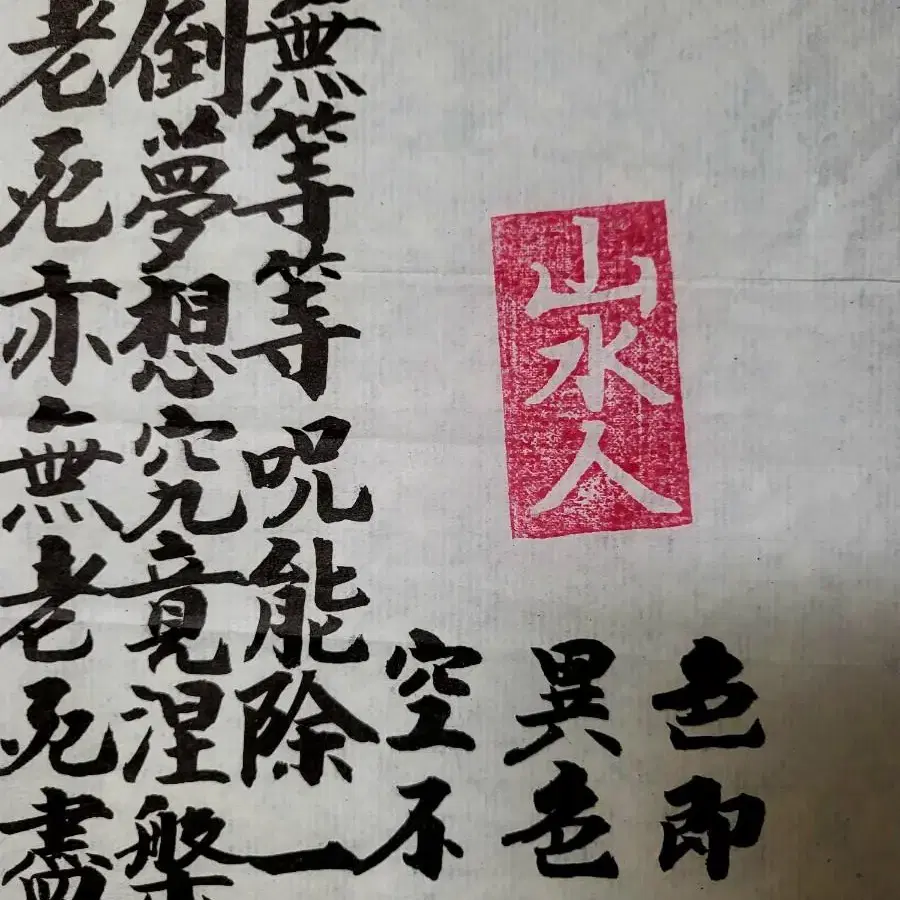 老死亦無老死盡
倒夢想究竟涅槃
無等等呪能除一
空不
異色
色即
山水人